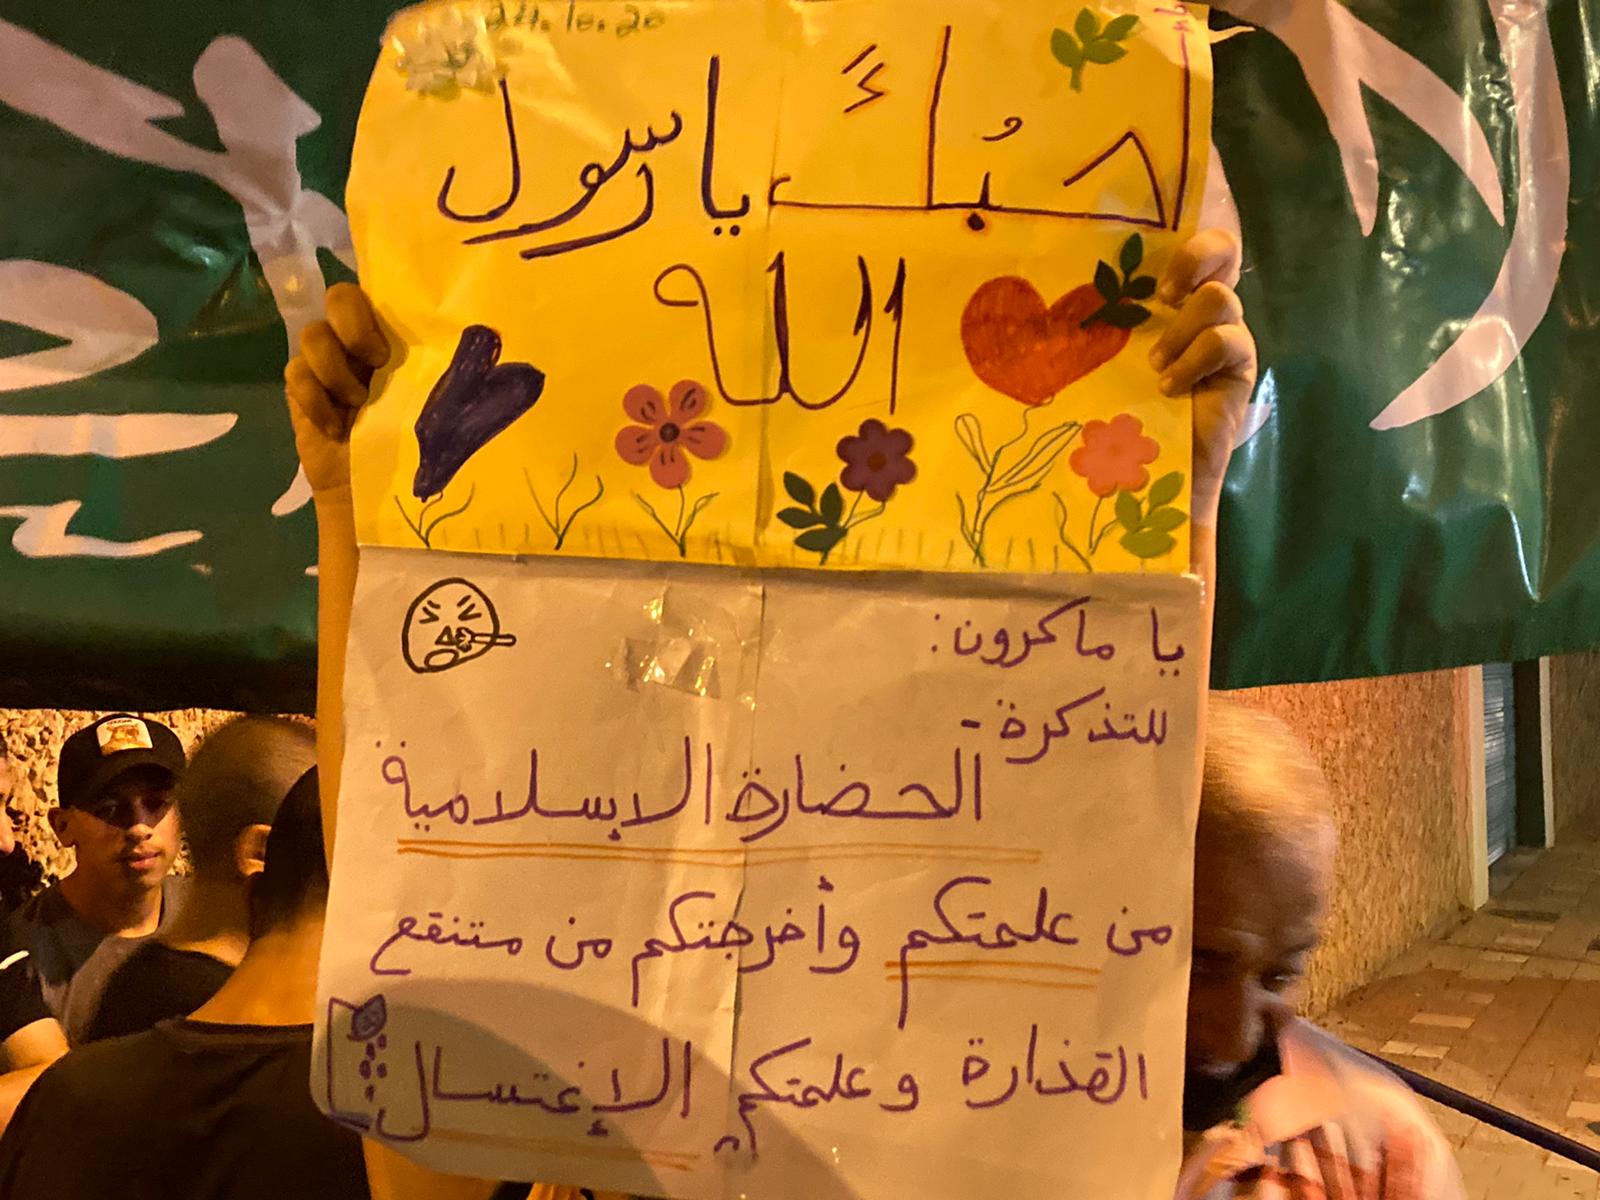 24.10.20
احبُكَ يا رسول
الله
يا ماكرون:
للتذكرة -
الحضارة الاسلامية
من علمتكم وأخرجتكم من متنقع
القذارة وعلمتكم الإغتسال